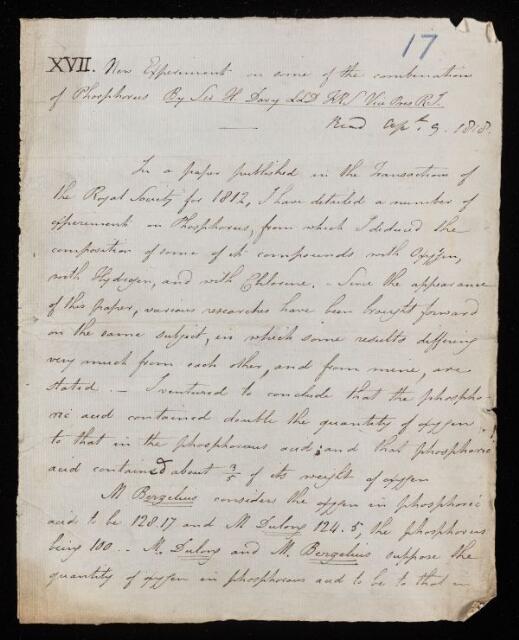 17
XVII. New Experiment on some of the combination
of Phosphorus By Sir H Davy LLD FRS Vice Pres R.I.
Read Apl. 9. 1818.
In a paper published in the Transactions of
the Royal Society for 1812, I have detailed a number of
experiment on Phosphorus, from which I deduced the
composition of some of its compounds with Oxygen,
with Hydrogen, and with Chlorine. - Since the appearance
of this paper, various researches have been brought forward
on the same subject, in which some results differing
very much from each other, and from mine, are
stated. - I ventured to conclude that the phospho-
ric acid contained double the quantity of oxygen
to that in the phosphorous acid; and that phosphoric
acid contained about 3/5 of its weight of oxygen
M Bergelius considers the oxygen in phosphoric
acid to be 128.17 and M Dulong 124.5, the phosphorus
being 100. - M. Dulong and M. Bergelius suppose the
quantity of oxygen in phosphorous acid to be to that in